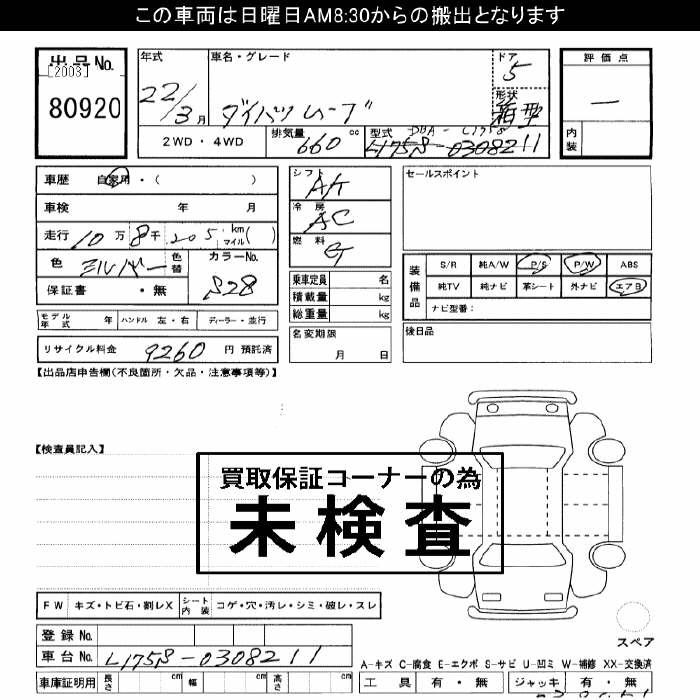 この車両は日曜日AM8:30からの搬出となります
出品No.
[2003]
80920
年式
22/3月
車名・グレード
ダイハツムーブ
ドア
5
形状
箱型
評価点
—
内装
2WD・4WD
排気量 660 cc
型式 DBA-L175S
L175S-0308211
車歴 自家用・( )
車検 年 月
走行 10万8千205 km マイル( )
色 シルバー 色替
カラーNo.
S28
保証書 ・無
シフト
AT
冷房
AC
燃料
G
乗車定員 名
積載量 kg
総重量 kg
セールスポイント
装備品
S/R 純A/W P/S P/W ABS
純TV 純ナビ 革シート 外ナビ エアB
ナビ型番:
モデル年式 年 ハンドル 左・右 ディーラー・並行
名変期限
月 日
後日品
リサイクル料金 9260 円 預託済
【出品店申告欄(不良箇所・欠品・注意事項等)】
【検査員記入】
買取保証コーナーの為
未検査
FW キズ・トビ石・割レX シート内装 コゲ・穴・汚レ・シミ・破レ・スレ
登録No.
車台No. L175S-0308211
スペア
A-キズ C-腐食 E-エクボ S-サビ U-凹ミ W-補修 XX-交換済
車庫証明用 長さ cm 幅 cm 高さ cm
工具 有・無 ジャッキ 有・無